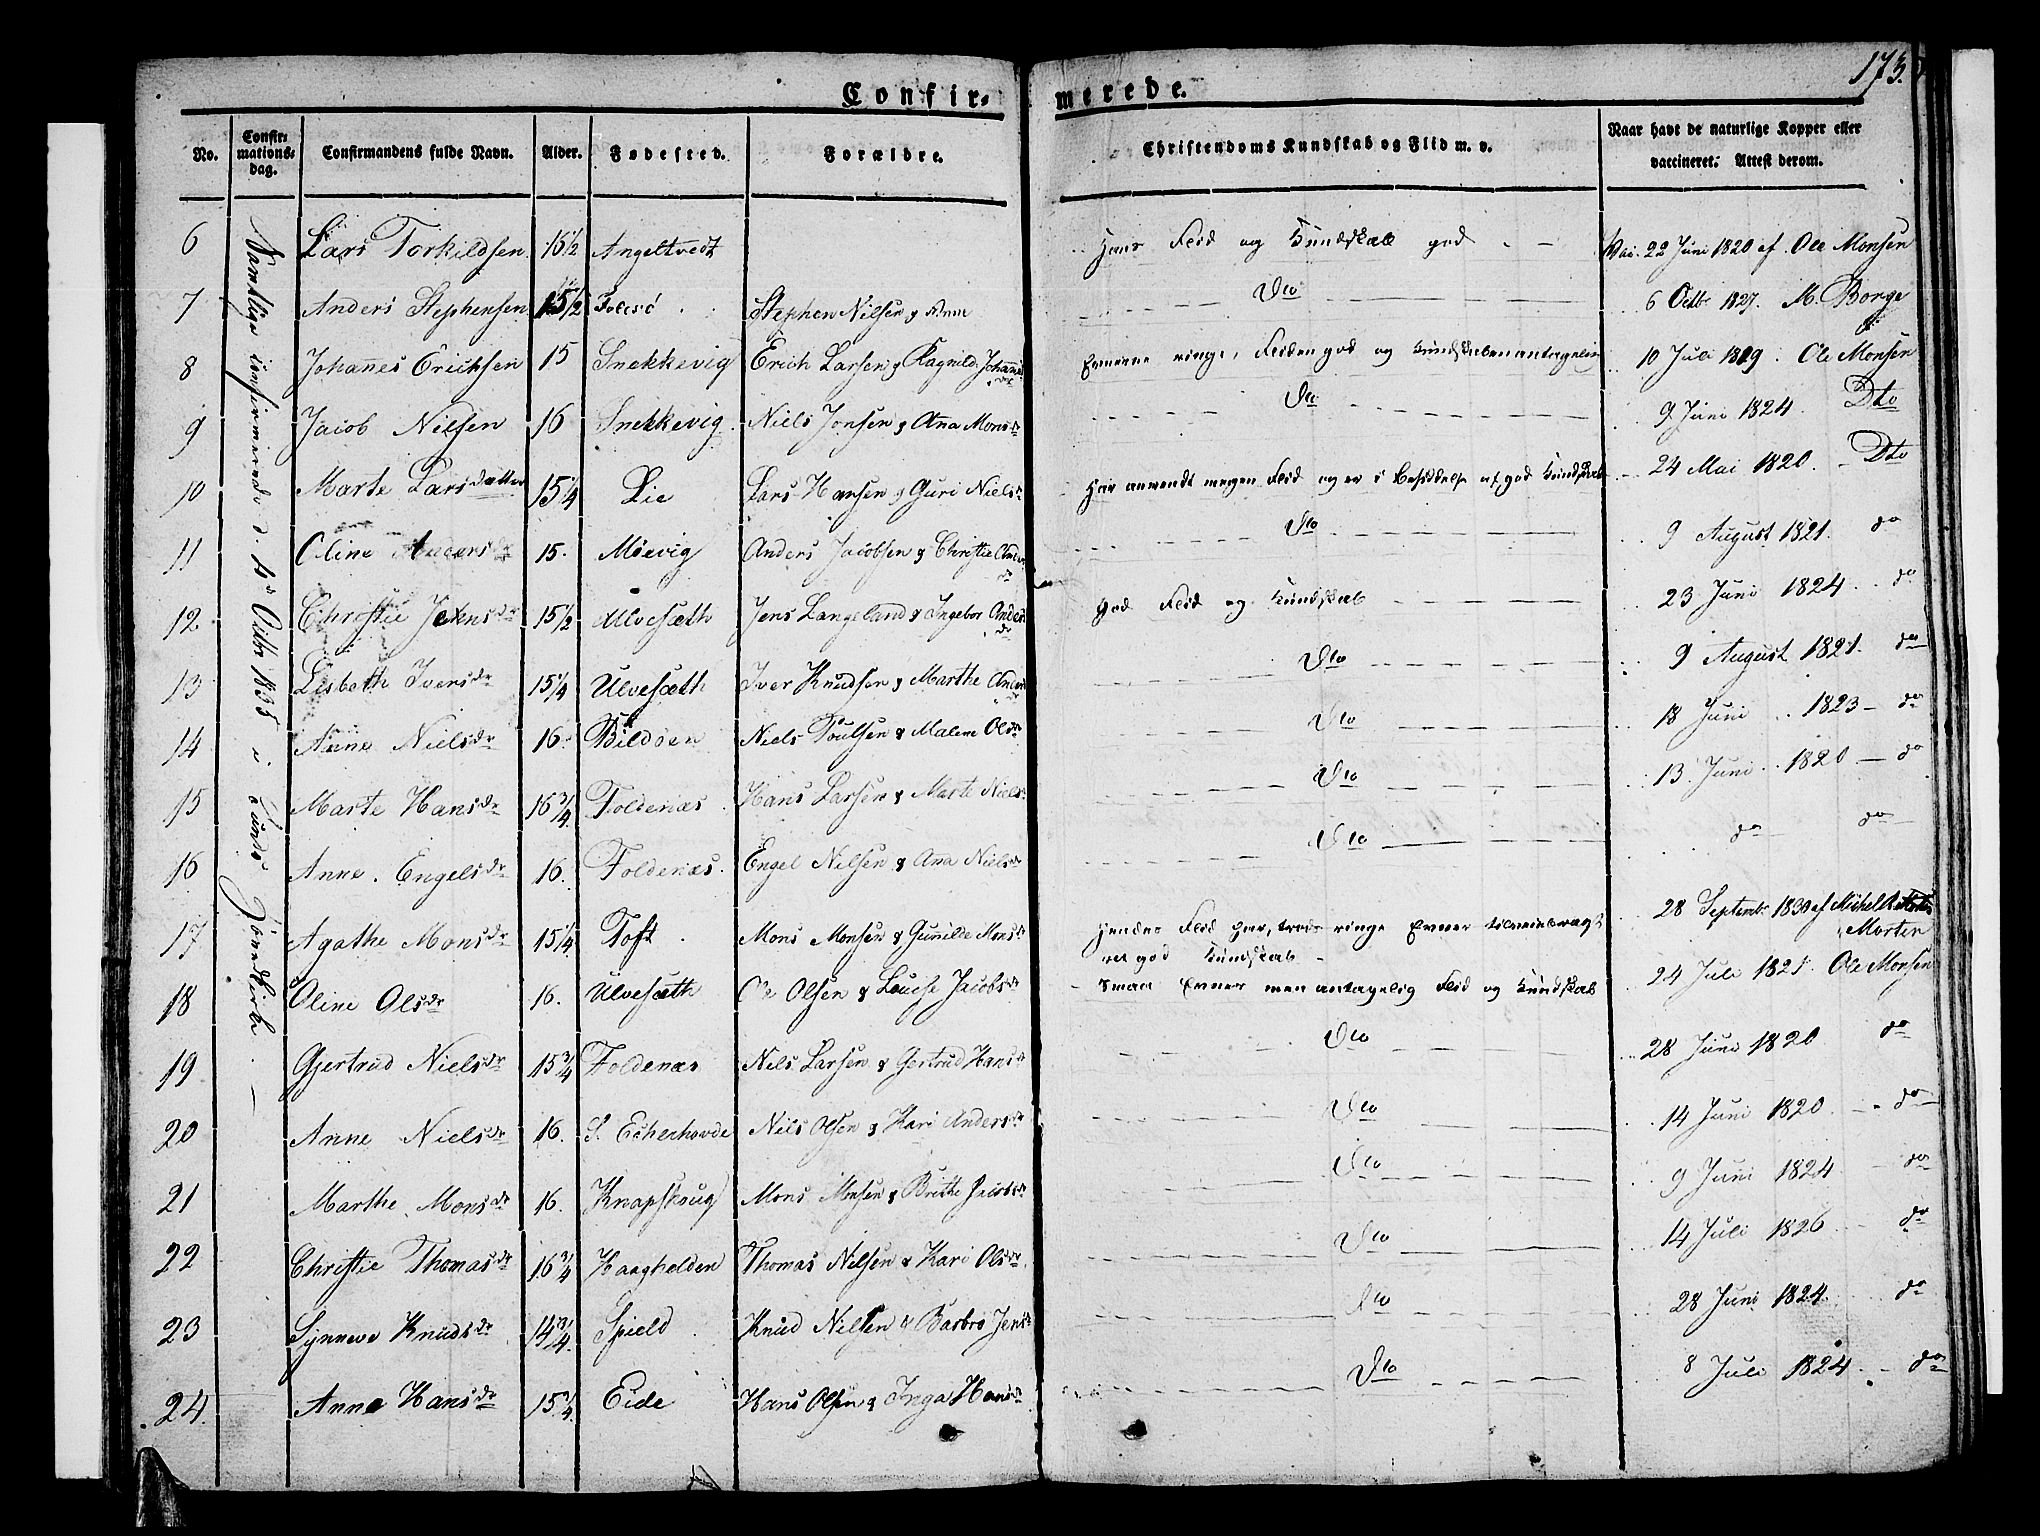 173.
Confir-merede.
No. Confir-mations-dag. Confirmandens fulde Navn. Alder. Fødested. Forældre. Christendoms Kundskab og Flid m. v. Naar havt de naturlige Kopper eller vaccineret: Attest derom.
Samtlige confirmerede d. 4de Octbr 1835 i Sunds Kirke. —
6 Lars Torkildsen 16 1/2 Angeltvedt Hans Flid og Kundskab god - - Vac. 22 Juni 1820 af Ole Monsen
7 Anders Stephensen 15 1/2 Folesö Stephen Nilsen & Do 6 Octbr 1827. M. Borge
8 Johañes Erichsen 15 Snekkevig Erich Larsen & Ragnild Johannesdr Evnerne ringe, Fliden god og Kundskaben antagelig 10 Juli 1819. Ole Monsen
9 Jacob Nilsen 16 Snekkevig Niels Jonsen & Aña Monsdr Do 9 Juni 1824. Dto
10 Marte Larsdatter 15 1/4 Lie Lars Hansen & Guri Nielsdr Har anvendt megen Flid og er i besiddelse af god Kundskab 24 Mai 1820. - Dto
11 Oline Andersdr 15. Möevig Anders Jacobsen & Christie Andersdr Do 9 August 1821. do
12 Christie Jensdr 15 1/2 Ulvesæth Jens Langeland & Ingebor Andersdr God Flid og Kundskab 23 Juni 1824. do
13 Lisbeth Iversdr 15 1/4 Ulvesæth Iver Knudsen & Marthe Andersdr Do 9 August 1821. do
14 Anne Nielsdr 16. Bildöen Niels Poulsen & Malene Olsdr Do 18 Juni 1823 - do
15 Marte Hansdr 16 3/4 Foldenæs Hans Larsen & Marte Nielsdr Do 13 Juni 1820 - do
16 Anne Engelsdr 16. Foldenæs. Engel Nilsen & Aña Nielsdr Do do do
17 Agathe Monsdr 15 1/4 Toft Mons Monsen & Gunilde Monsdr Hendes Flid har, trods ringe Evner tilveiebragt
ret god Kundskab - 28 Septembr 1830 af Michel
Morten
18 Oline Olsdr 16. Ulvesæth Ole Olsen & Louise Jacobsdr Smaa Evner men antagelig Flid og Kundskab 24 Juli 1821. Ole Monsen
19 Gjertrud Nielsdr 15 3/4 Foldenæs Niels Larsen & Gertrud Hansdr Do 28 Juni 1820 do
20 Anne Nielsdr 16. S. Eckerhovde Nils Olsen & Kari Andersdr Do 14 Juni 1820. - do
21 Marthe Monsdr 16. Knapskoug Mons Monsen & Brithe Jacobsdr Do 9 Juni 1824 - do
22 Christie Thomasdr 16 3/4 Haagholden Thomas Nilsen & Kari Olsdr Do 14 Juli 1826 - do
23 Synneve Knudsdr 14 3/4 Spield Knud Nilsen & Barbro Jensdr Do 28 Juni 1824. do
24. Anne Hansdr 15 3/4 Eide Hans Olsen & Inga Hansdr Do 8 Juli 1824. - do